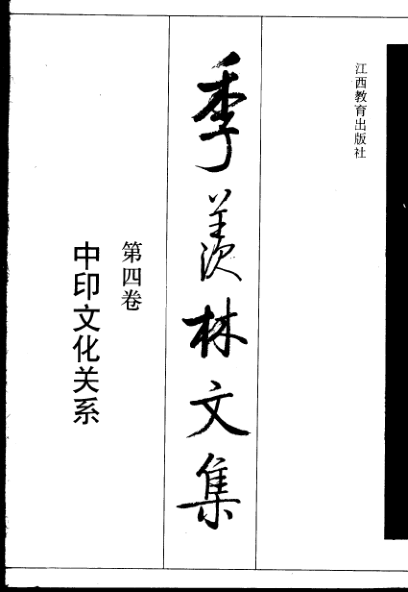 江西教育出版社
季羡林文集
第四卷
中印文化关系